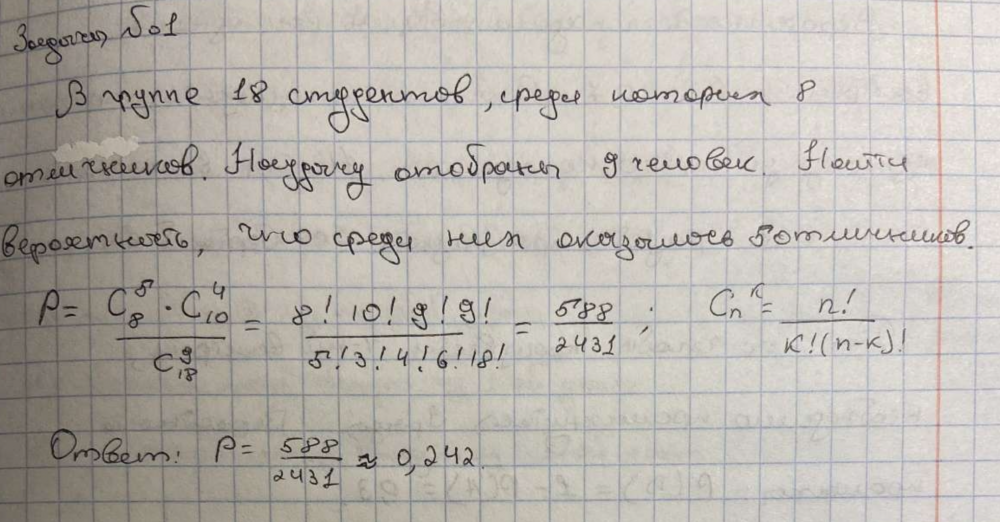 Задача №1
В группе 18 студентов, среди которых 8
отличников. Наудачу отобраны 9 человек. Найти
вероятность, что среди них оказалось 5 отличников.
P = C₈⁵ · C₁₀⁴ / C₁₈⁹ = 8! 10! 9! 9! / 5! 3! 4! 6! 18! = 588 / 2431 ; Cₙᵏ = n! / k!(n-k)!
Ответ: P = 588 / 2431 ≈ 0,242.